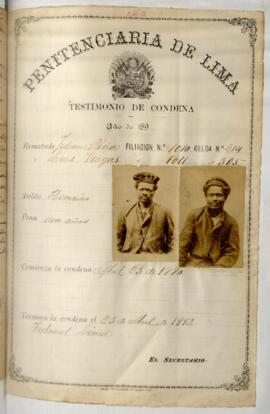 PENITENCIARIA DE LIMA
TESTIMONIO DE CONDENA
Año de 189
Rematado Julian FILIACION N.º 1010 CELDA N.º 214
Luis Vargas 1011 305
Delito Homicidio
Pena años
Comienza la condena Abril 23 de
Termina la condena el 23 de Abril de 1892
Tribunal Lima
EL SECRETARIO